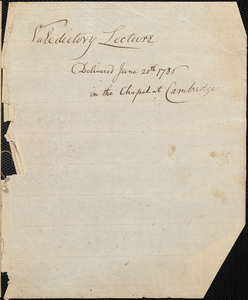 Valedictory Lecture
Delivered June 20th 1786
in the Chapel at Cambridge